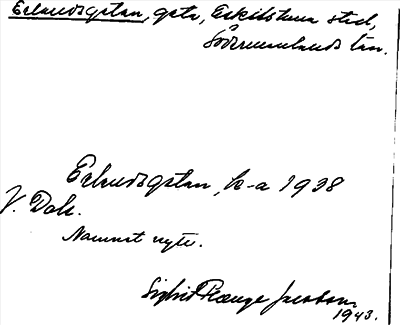 Erlandsgatan, gata, Eskilstuna stad,
Södermanlands län.
Erlandsgatan, k-a 1938
V. Dal.
Namnet nytt.
Sigfrid Jacobson
1943.